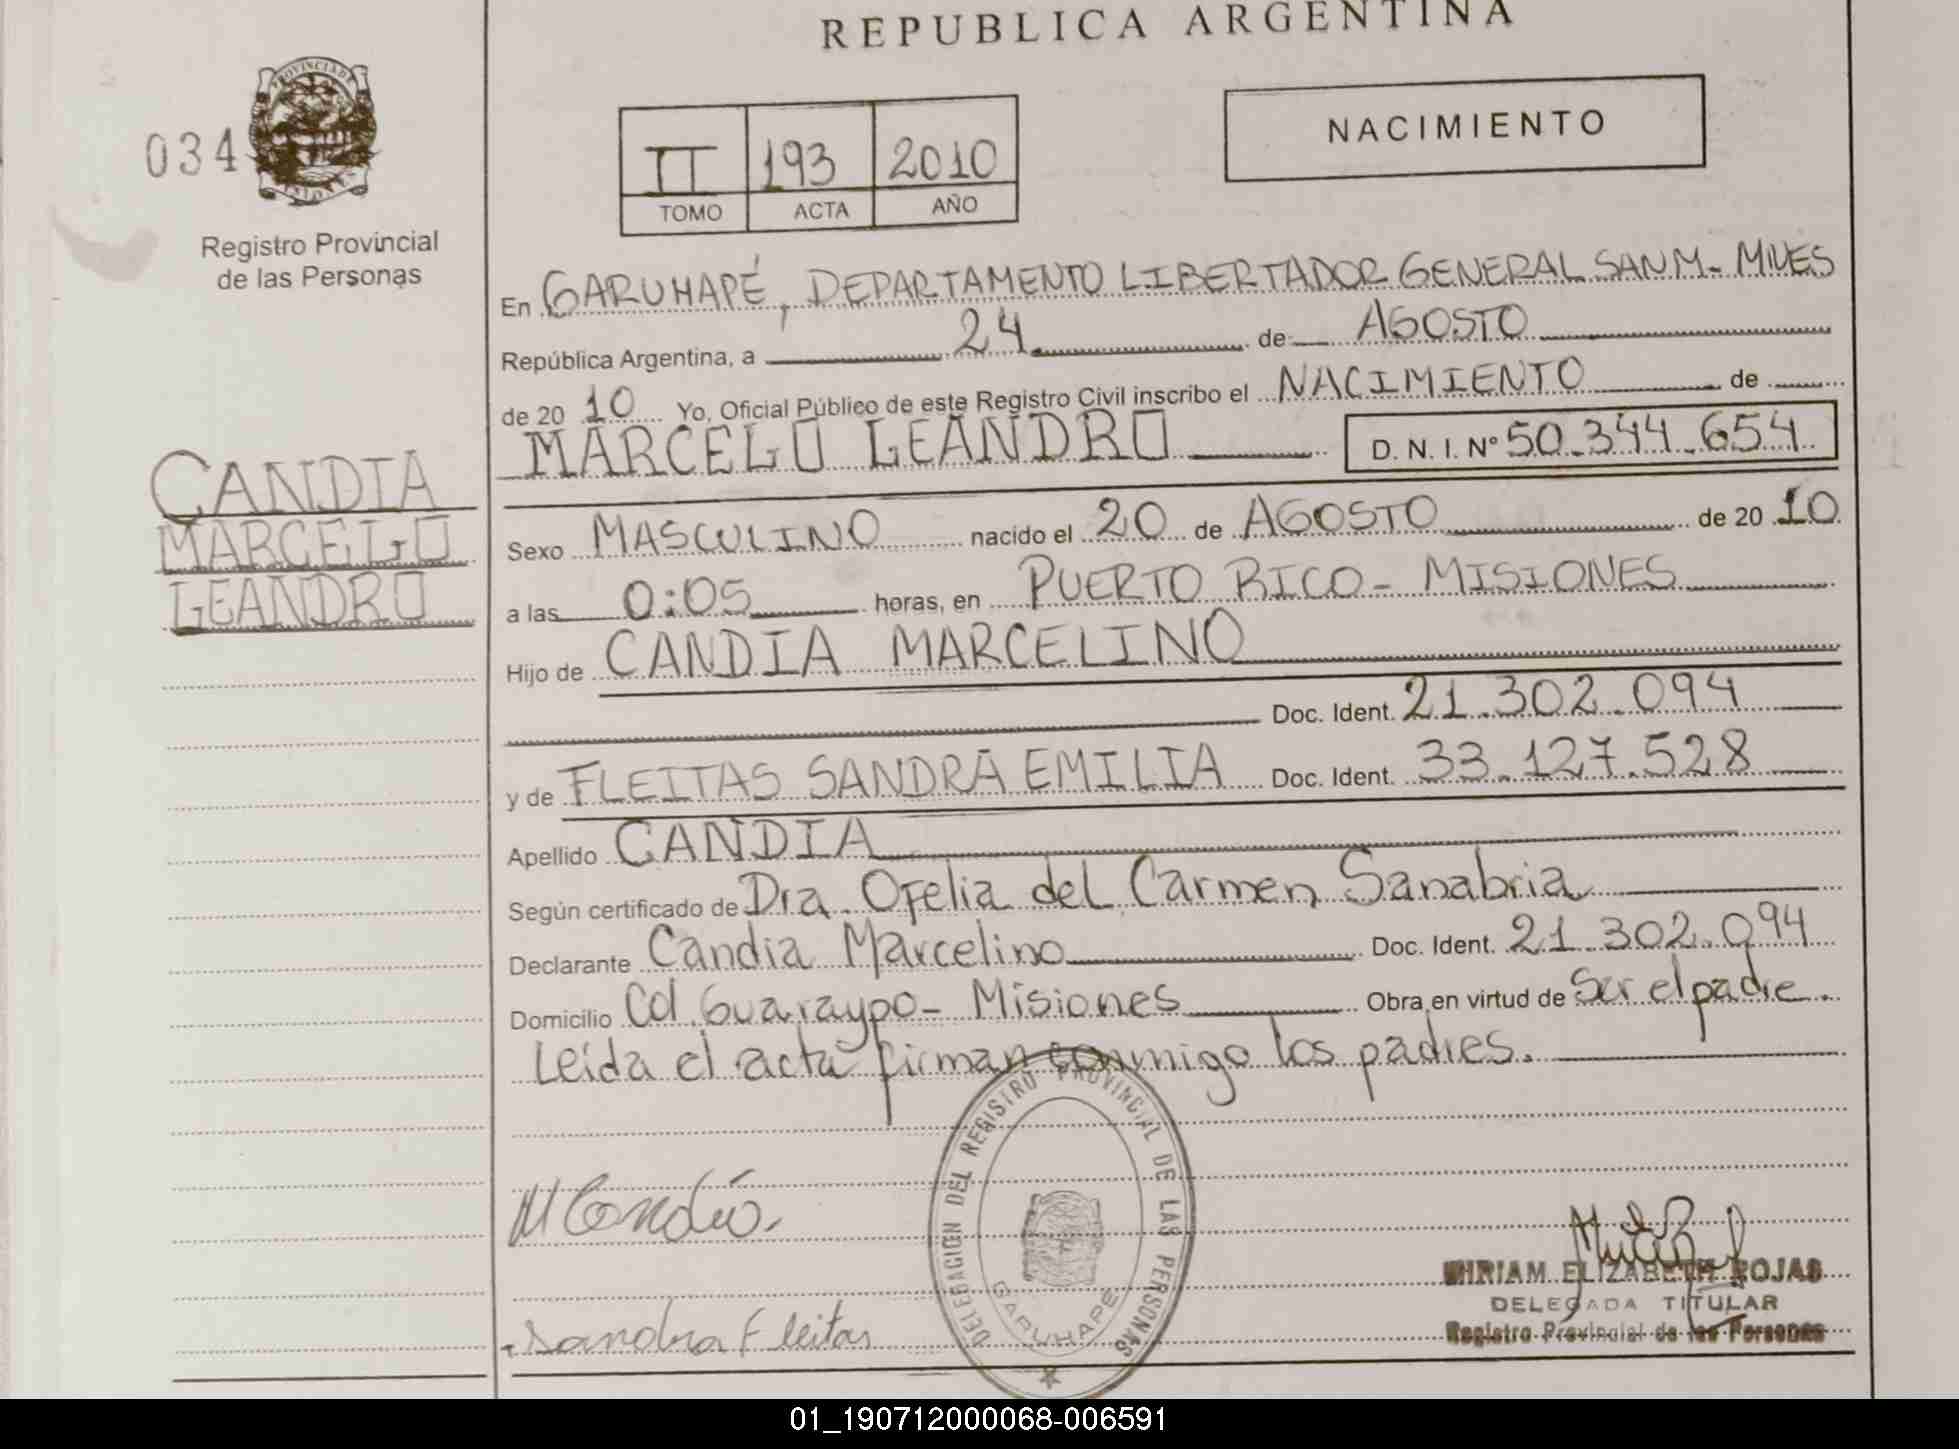 REPUBLICA ARGENTINA
034
PROVINCIA DE MISIONES
Registro Provincial
de las Personas
II 193 2010
TOMO ACTA AÑO
NACIMIENTO
En GARUHAPÉ, DEPARTAMENTO LIBERTADOR GENERAL SAN M. - MNES
República Argentina, a 24 de AGOSTO
de 20 10 Yo, Oficial Público de este Registro Civil inscribo el NACIMIENTO de
MARCELO LEANDRO D. N. I. Nº 50.344.654
CANDIA
MARCELO
LEANDRO
Sexo MASCULINO nacido el 20 de AGOSTO de 20 10
a las 0:05 horas, en PUERTO RICO - MISIONES
Hijo de CANDIA MARCELINO
Doc. Ident. 21.302.094
y de FLEITAS SANDRA EMILIA Doc. Ident. 33.127.528
Apellido CANDIA
Según certificado de Dra. Ofelia del Carmen Sanabria
Declarante Candia Marcelino Doc. Ident. 21.302.094
Domicilio Col. Guaraypo - Misiones Obra en virtud de Ser el padre.
Leída el acta firman conmigo los padres.
DELEGACION DEL REGISTRO PROVINCIAL DE LAS PERSONAS
GARUHAPE
M Candia.
Sandra Fleitas
MIRIAM ELIZABETH ROJAS
DELEGADA TITULAR
Registro Provincial de las Personas
01_190712000068-006591